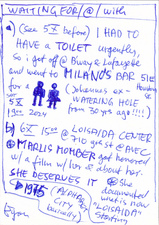 WAITING FOR/@/with
a) (see 5X before) I HAD TO
HAVE A TOILET urgentley,
so i get off @ B'way & Lafayette
and went to MILANO'S BAR 51E
Houston St
for a
(Johannes ex-
WATERING HOLE
from 30 yrs ago!!!!)
5X
19ºº 2024
b) 6X 15ºº @ LOISAIDA CENTER
@ 710 9st @ AVE C
MARLIS MOMBER got honored
w/ a film w/ & about her.
SHE DESERVES IT
She
documented
what is now
"LOISAIDA"
starting
1975
(ALPHABET
CITY